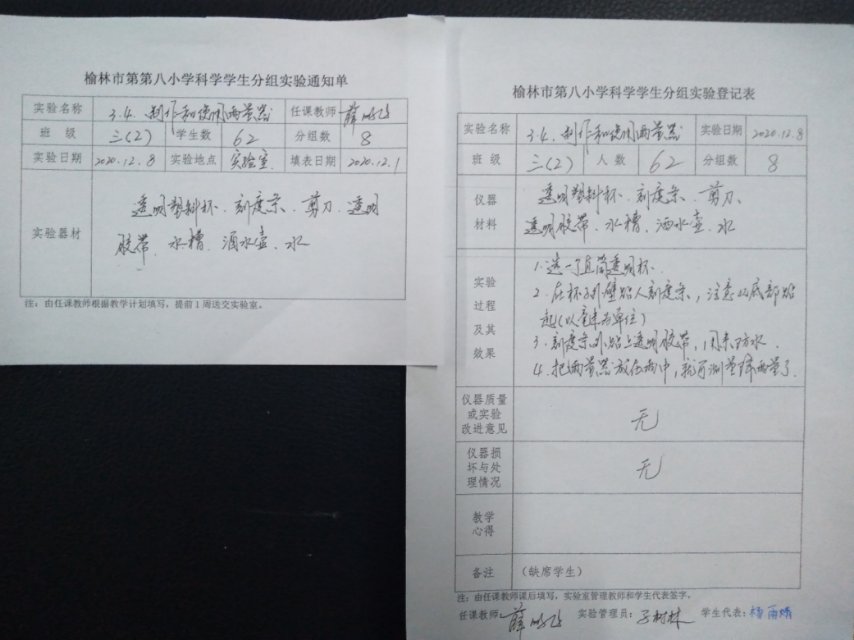 榆林市第八小学科学学生分组实验通知单
实验名称 3.4.制作和使用雨量器 任课教师
班 级 三(2) 学生数 62 分组数 8
实验日期 2020.12.8 实验地点 实验室 填表日期 2020.12.1
实验器材
透明塑料杯.刻度条.剪刀.透明
胶带.水槽.洒水壶.水
注：由任课教师根据教学计划填写，提前1周送交实验室。
榆林市第八小学科学学生分组实验登记表
实验名称 3.4.制作和使用雨量器 实验日期 2020.12.8
班 级 三(2) 人 数 62 分组数 8
仪器
材料
透明塑料杯.刻度条.剪刀、
透明胶带.水槽.洒水壶.水
实验
过程
及其
效果
1.选一个直筒透明杯.
2.在杯子外壁贴刻度条，注意从底部贴
起(以毫米为单位)
3.刻度条外贴上透明胶带，用来防水.
4.把雨量器放在雨中，就可测量降雨量了.
仪器质量
或实验
改进意见
无
仪器损
坏与处
理情况
无
教学
心得
备注 （缺席学生）
注：由任课教师课后填写，实验室管理教师和学生代表签字。
任课教师: 实验管理员: 学生代表: